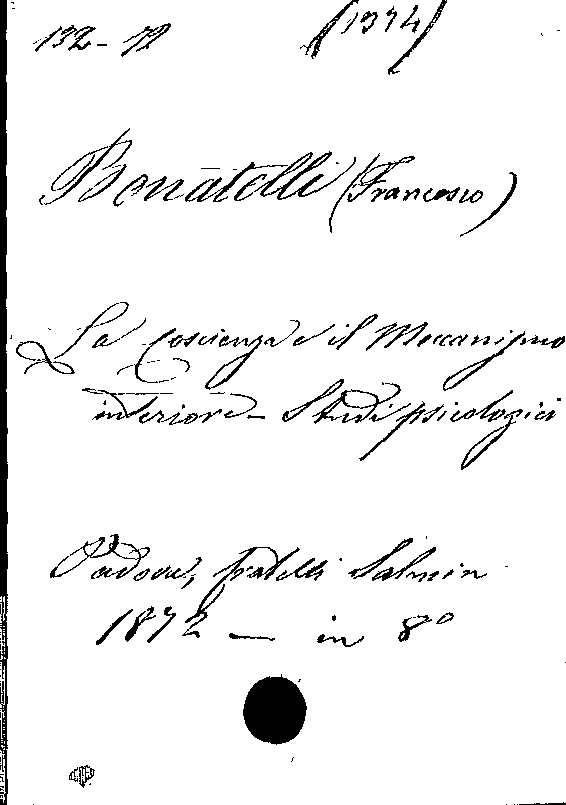 132-72
(1374)
Bonatelli (Francesco)
La Coscienza e il Meccanismo
interiore - Studi psicologici
Padova, fratelli Salmin
1872 — in 8°